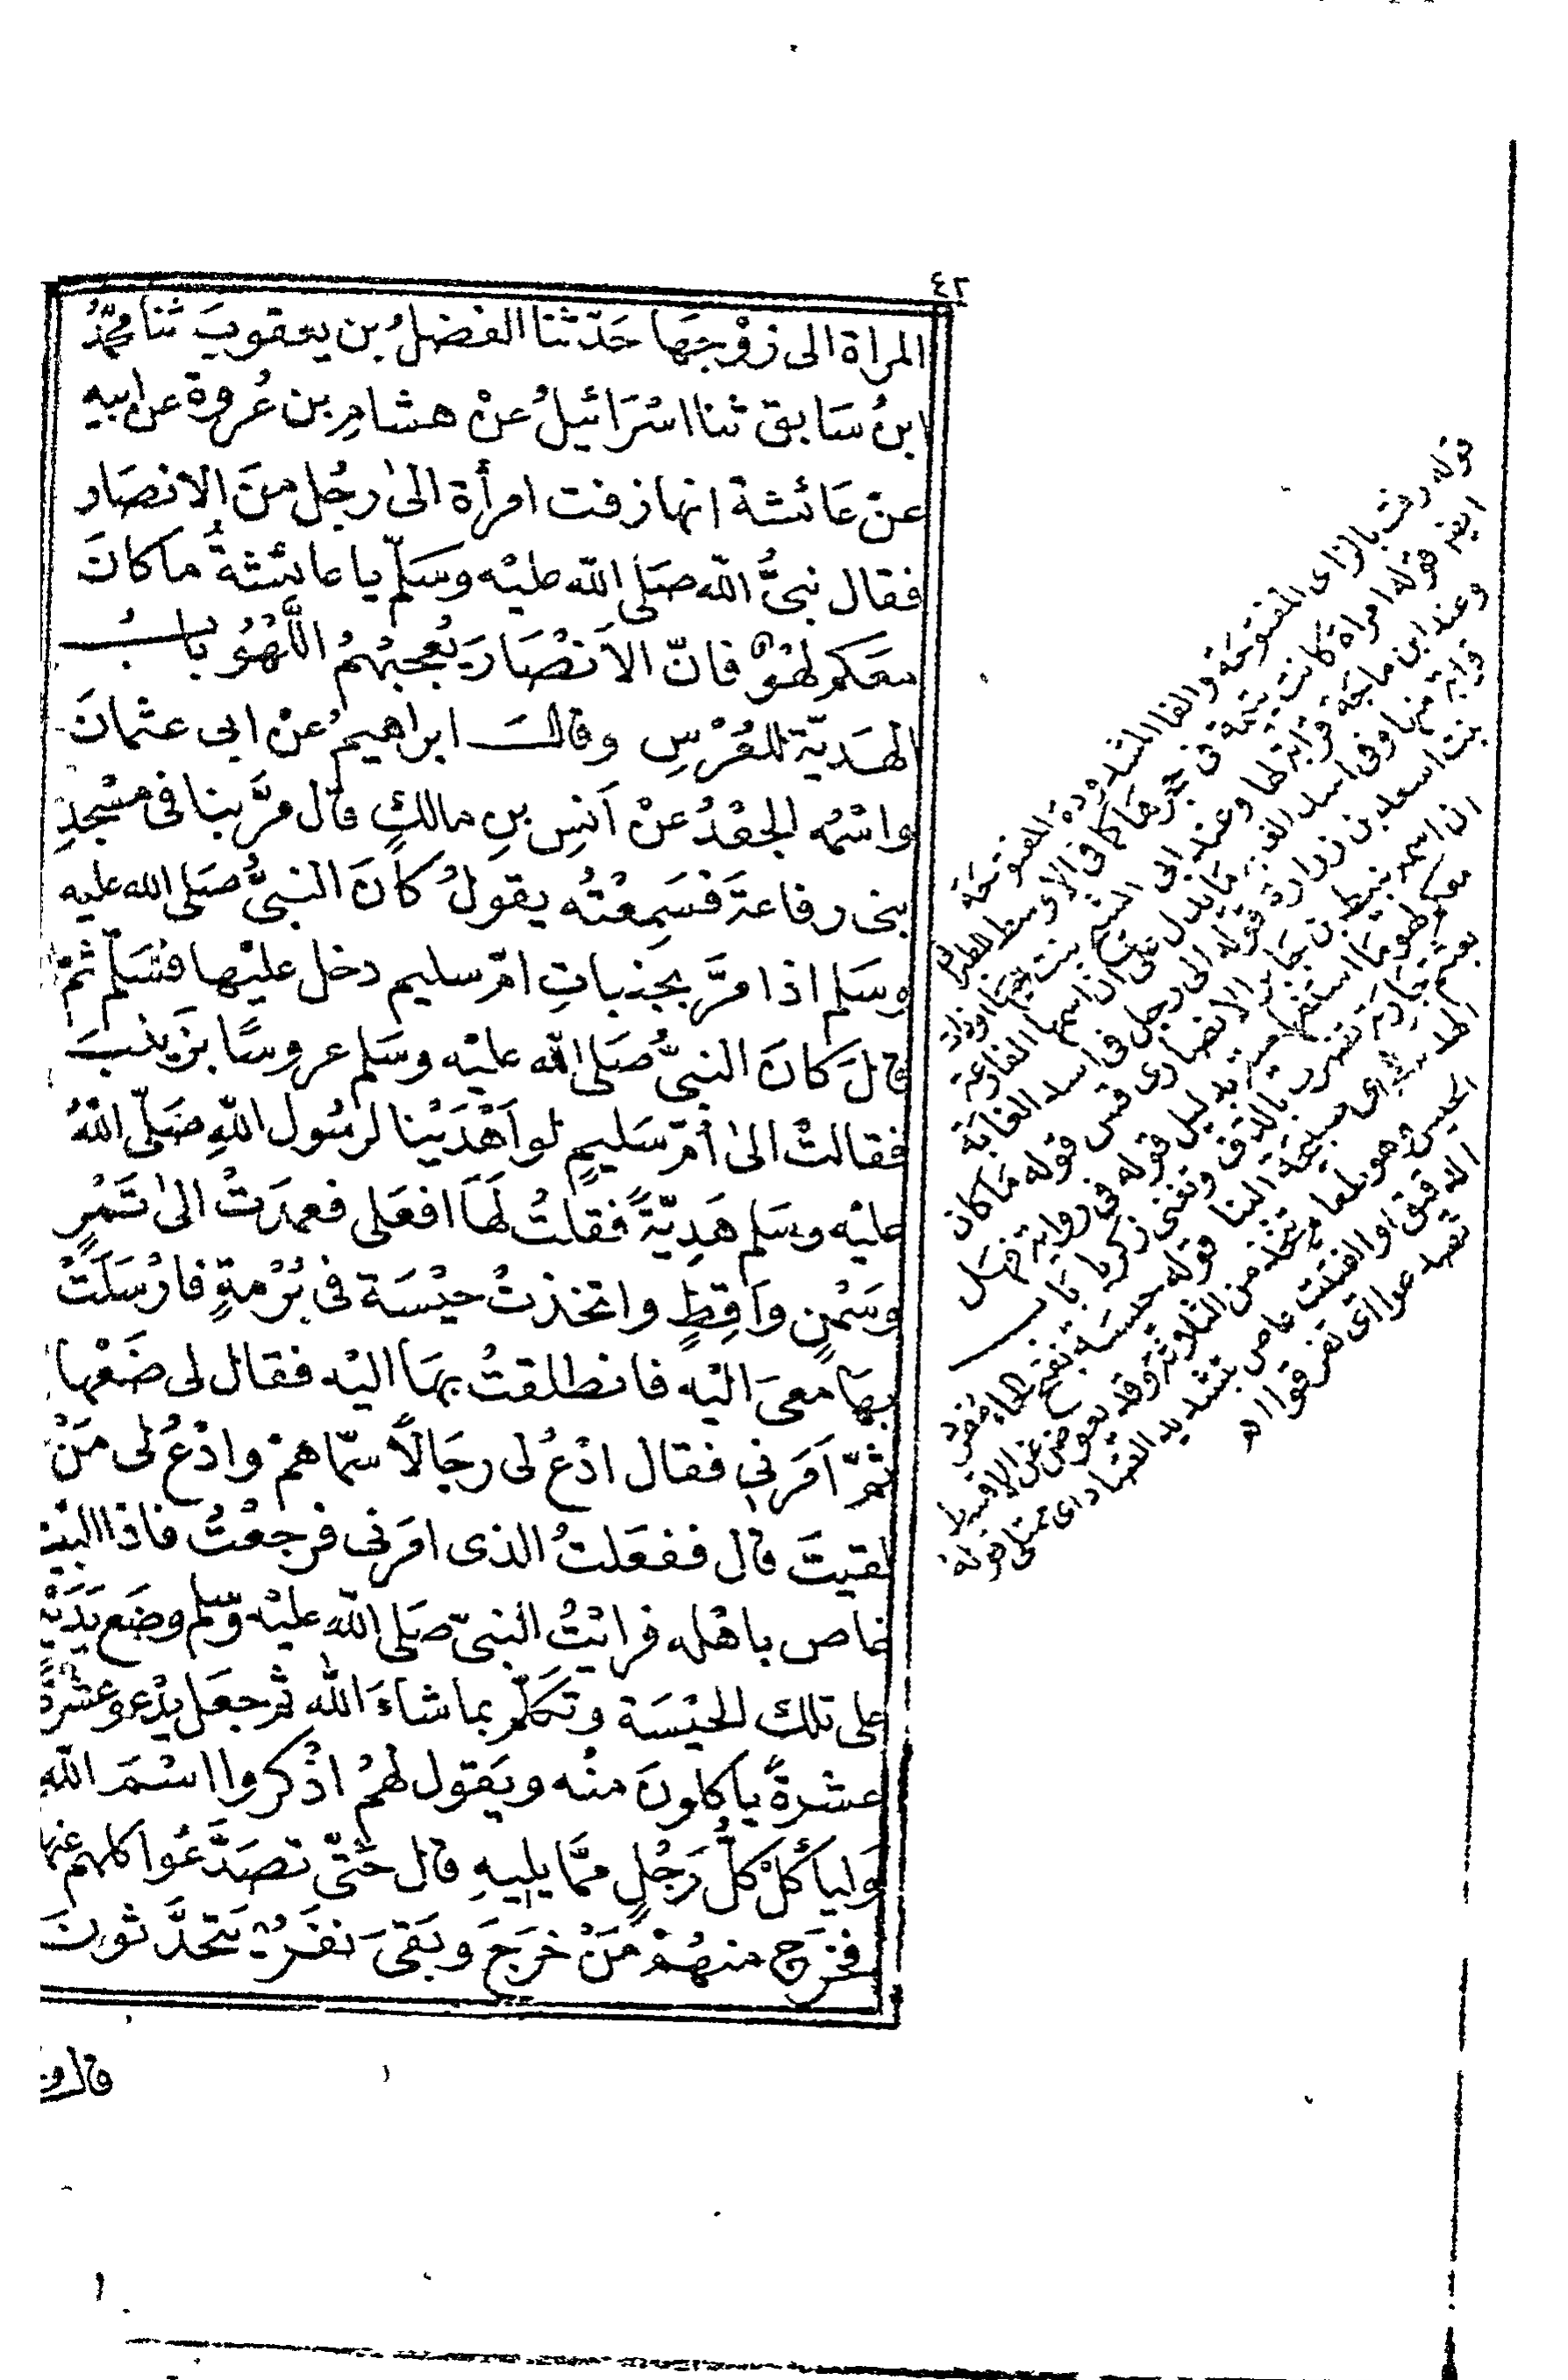 ٤٢
المراة الى زَوْجِهَا حَدّثنا الفضلُ بن يعقوبَ ثنا محمّدُ
ابنُ سَابق ثنا اسْرَائيلُ عنْ هشامِ بن عُروة عن ابيهِ
عنْ عَائشة انها زفت امرأة الىٰ رجُل منَ الانصَار
فقال نبىُّ اللّه صَلى اللّه عليْه وسَلّم يا عائشةُ ما كانَ
معَكم لهْوٌ فانّ الاَنْصَارَ يُعجبُهُمُ اللَّهْوُ بابُ
الهَديّة للعُرْسِ وقال ابراهيمُ عنْ ابى عثمانَ
واسْمُه الجعْدُ عنْ اَنسِ بنِ مالكٍ قال مرَّ بنا فى مسْجدِ
بنى رفاعةَ فسَمِعْتُه يقولُ كانَ النبىُّ صَلى الله عليه
وسَلم اذا مرَّ بجَنباتِ امّ سليم دخل عليْها فسَلّم ثمّ
قالَ كانَ النبىُّ صَلى اللّه عليْه وسَلم عروسًا بزَينبَ
فقالتْ الىٰ أُمّ سَليمٍ لو اَهْدَيْنا لرسُول اللّهِ صَلّى اللّهُ
عليْه وسَلم هَدِيّةً فقلتُ لَهَا افعَلى فعمدَتْ الىٰ تَمْرٍ
وَسَمْنٍ واَقِطٍ واتخذتْ حيْسَة فى بُرْمةٍ فارْسَلَتْ
بهَا معىَ اليْه فانطلقتُ بهَا اليْه فقال لى ضَعْها
ثمّ اَمَرنى فقال ادْعُ لى رجَالاً سمّاهمْ وادْعُ لى منْ
لقيتَ قال ففعَلتُ الذى امَرنى فرجعْتُ فاذا البيْت
غاص باهْله فرايْتُ النبىّ صَلى اللّه عليْه وسلم وضَع يَدَيْهِ
على تلك الحيْسَة وتكلّم بما شاءَ اللّٰه ثم جعَل يدْعو عشرةً
عشرةً ياكلونَ منْه ويَقول لهمُ اذْكروا اسْمَ اللّه
وَليأكُلْ كلُّ رَجُلٍ ممَّا يليهِ قال حَتّى تصَدَّعُوا كلهم عنها
فخرَج منهُمْ مَنْ خرَجَ وبَقىَ نفَرٌ يَتحَدَّثونَ
قال و
قوله زفت بالزاى المفتوحة والفا المشددة المفتوحة
قوله امراة كانت يتيمة فى حجرها كما فى الاوسط للطبرانى
وعند ابن ماجة قرابة لها وعند ابى الشيخ بنت اخيها او ذات
قرابة منها وفى اسد الغابة ما يدل على ان اسمها الفارعة
بنت اسعد بن زرارة قوله الى رجل فى اسد الغابة
ان اسمه نبيط بن جابر الانصارى قوله ما كان
معكم لهو بدليل قوله فى رواية
بعثتم جارية تضرب بالدف وتغنى باب
قوله حيسة بفتح الحاء
الحيس وهو طعام يتخذ من الثلاثة وقد يعوض عن الاقط
الدقيق او الفتيت غاص بتشديد الصاد اى ممتلى قوله
تصدعوا اى تفرقوا اه